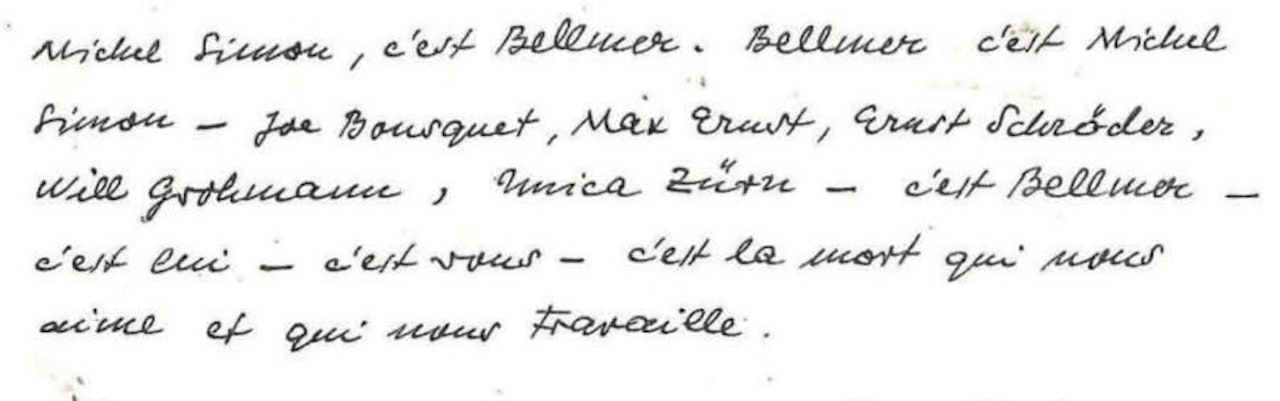 Michel Simon, c'est Bellmer. Bellmer c'est Michel
Simon – Joe Bousquet, Max Ernst, Ernst Schröder,
Will Grohmann, Unica Zürn – c'est Bellmer –
c'est lui – c'est vous – c'est la mort qui nous
aime et qui nous travaille.